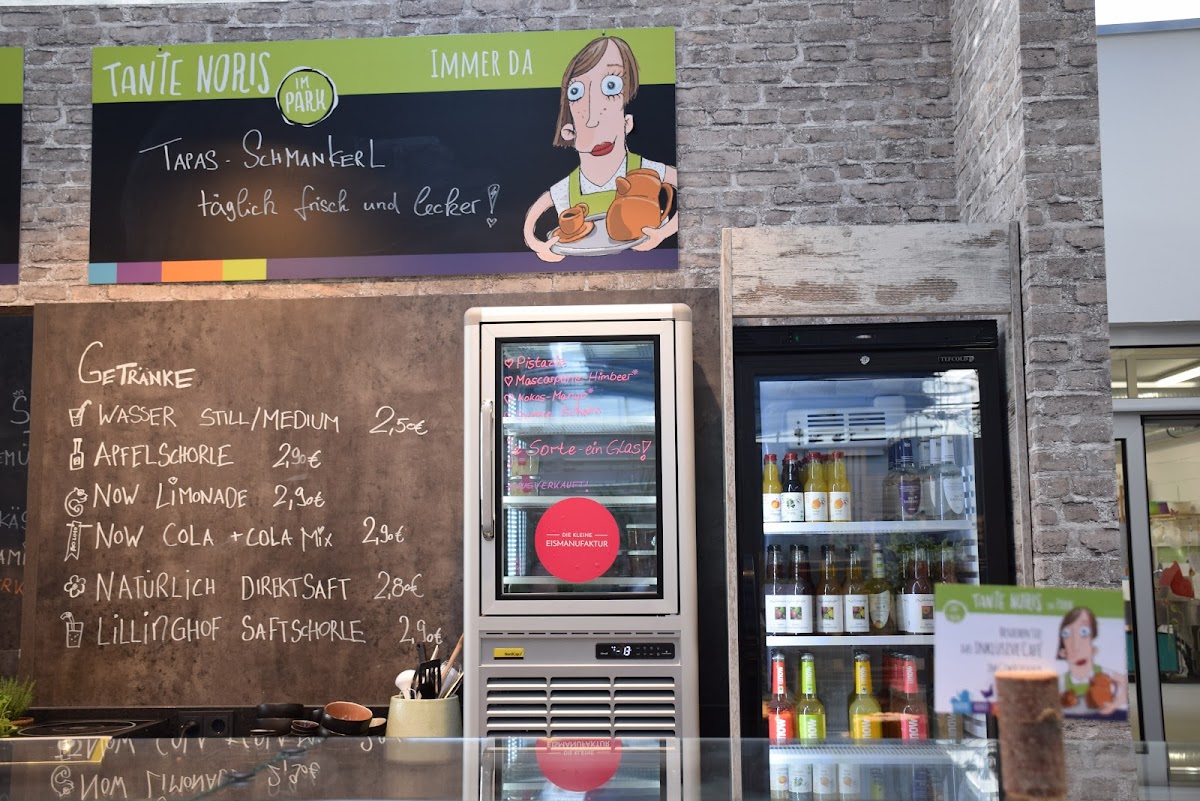 TANTE NORIS
IM
PARK
IMMER DA
TAPAS - SCHMANKERL
täglich frisch und lecker!
GETRÄNKE
WASSER STILL/MEDIUM 2,50€
APFELSCHORLE 2,90€
NOW LIMONADE 2,90€
NOW COLA + COLA MIX 2,90€
NATÜRLICH DIREKTSAFT 2,80€
LILLINGHOF SAFTSCHORLE 2,90€
Pistazie
Mascarpone Himbeer*
Kokos-Mango*
Sorte - ein Glas!
AUSVERKAUFT!
DIE KLEINE
EISMANUFAKTUR
NordCap
-18
TEFCOLD
TANTE NORIS IM PARK
DAS INKLUSIVE CAFÉ